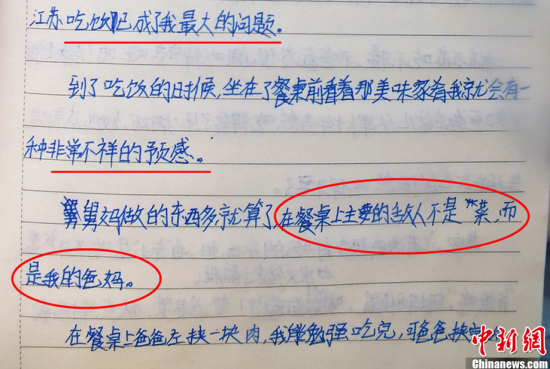 江苏吃饭已成了我最大的问题。
到了吃饭的时候,坐在了餐桌前看着那美味家肴我就会有一
种非常不祥的预感。
舅舅妈做的东西多就算了,在餐桌上主要的敌人不是"菜,而
是我的爸妈。
在餐桌上爸爸左挟一块肉,我能勉强吃完,可爸爸挟完
中新网
www.chinanews.com